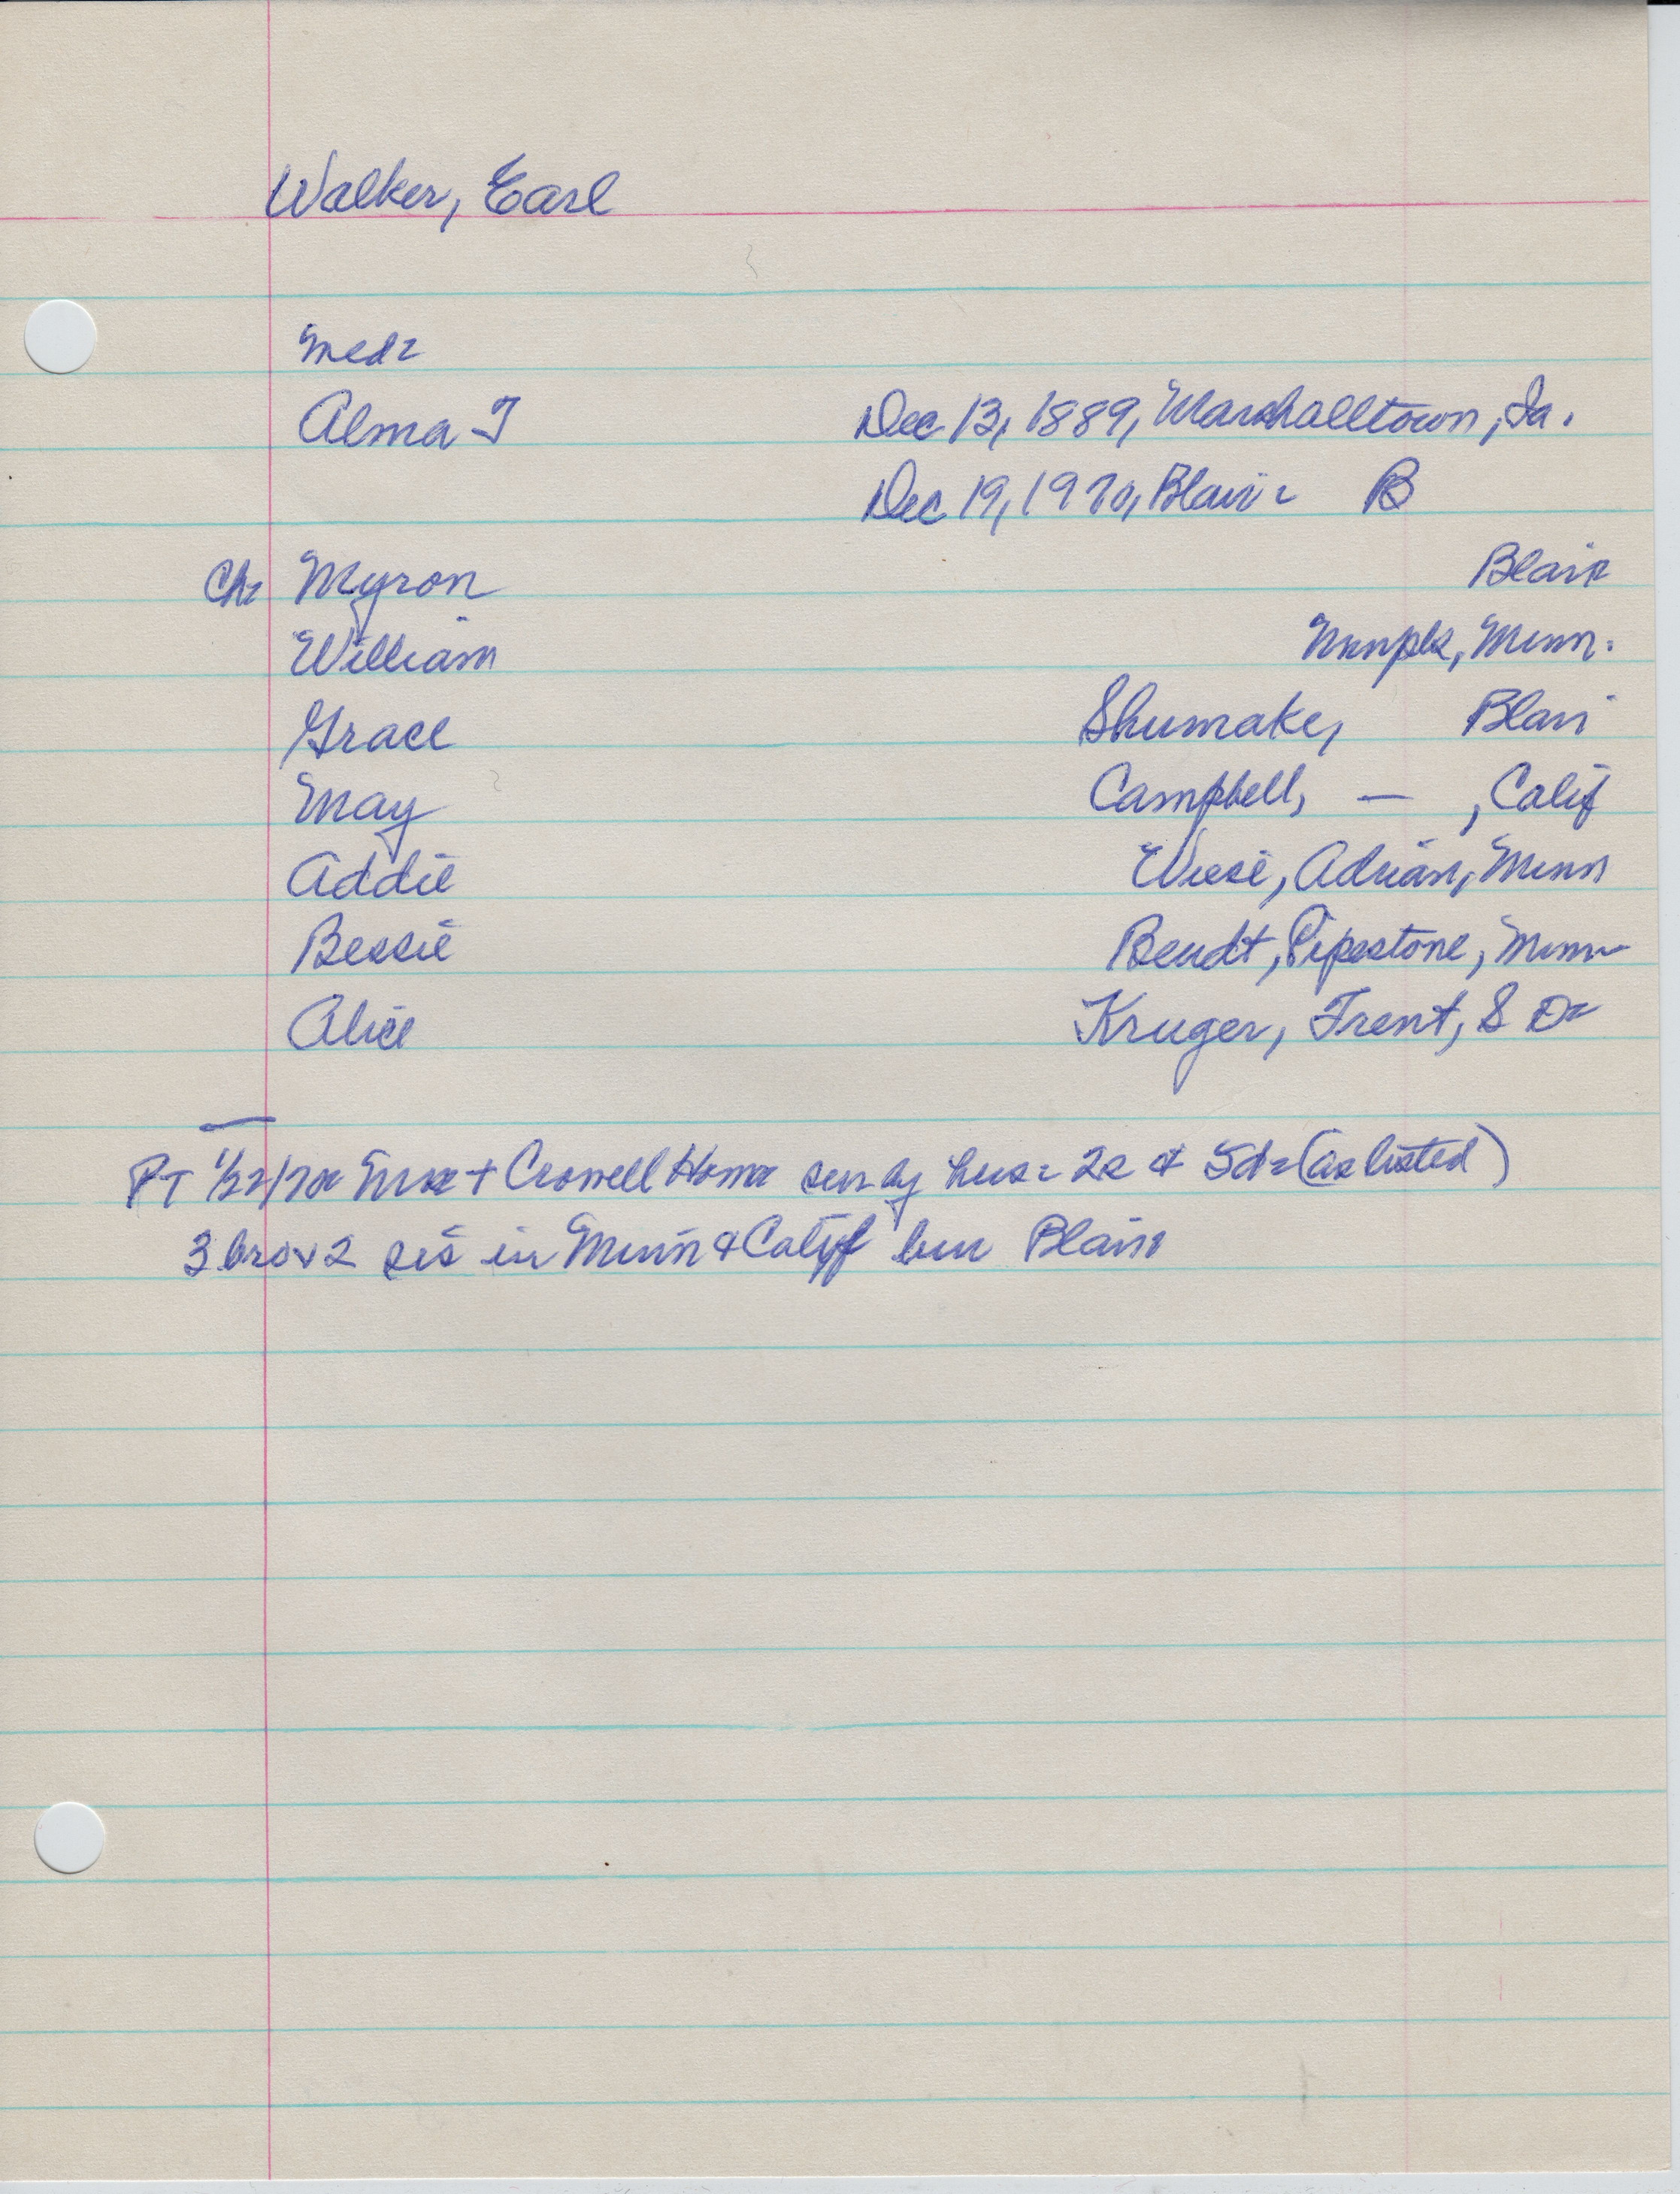 Walker, Earl
Med:
Alma T Dec 13, 1889, Marshalltown, Ia.
Dec 19, 1970, Blair: B
Ch: Myron Blair
William Mnpls, Minn.
Grace Shumake, Blair
May Campbell, — , Calif
Addie Wiese, Adrian, Minn
Bessie Bendt, Pipestone, Minn
Alice Kruger, Trent, S D:
PT + Crowell Home sur by hus: 2s & 5d: (as listed)
3 bro & 2 sis in Minn & Calif bur Blair